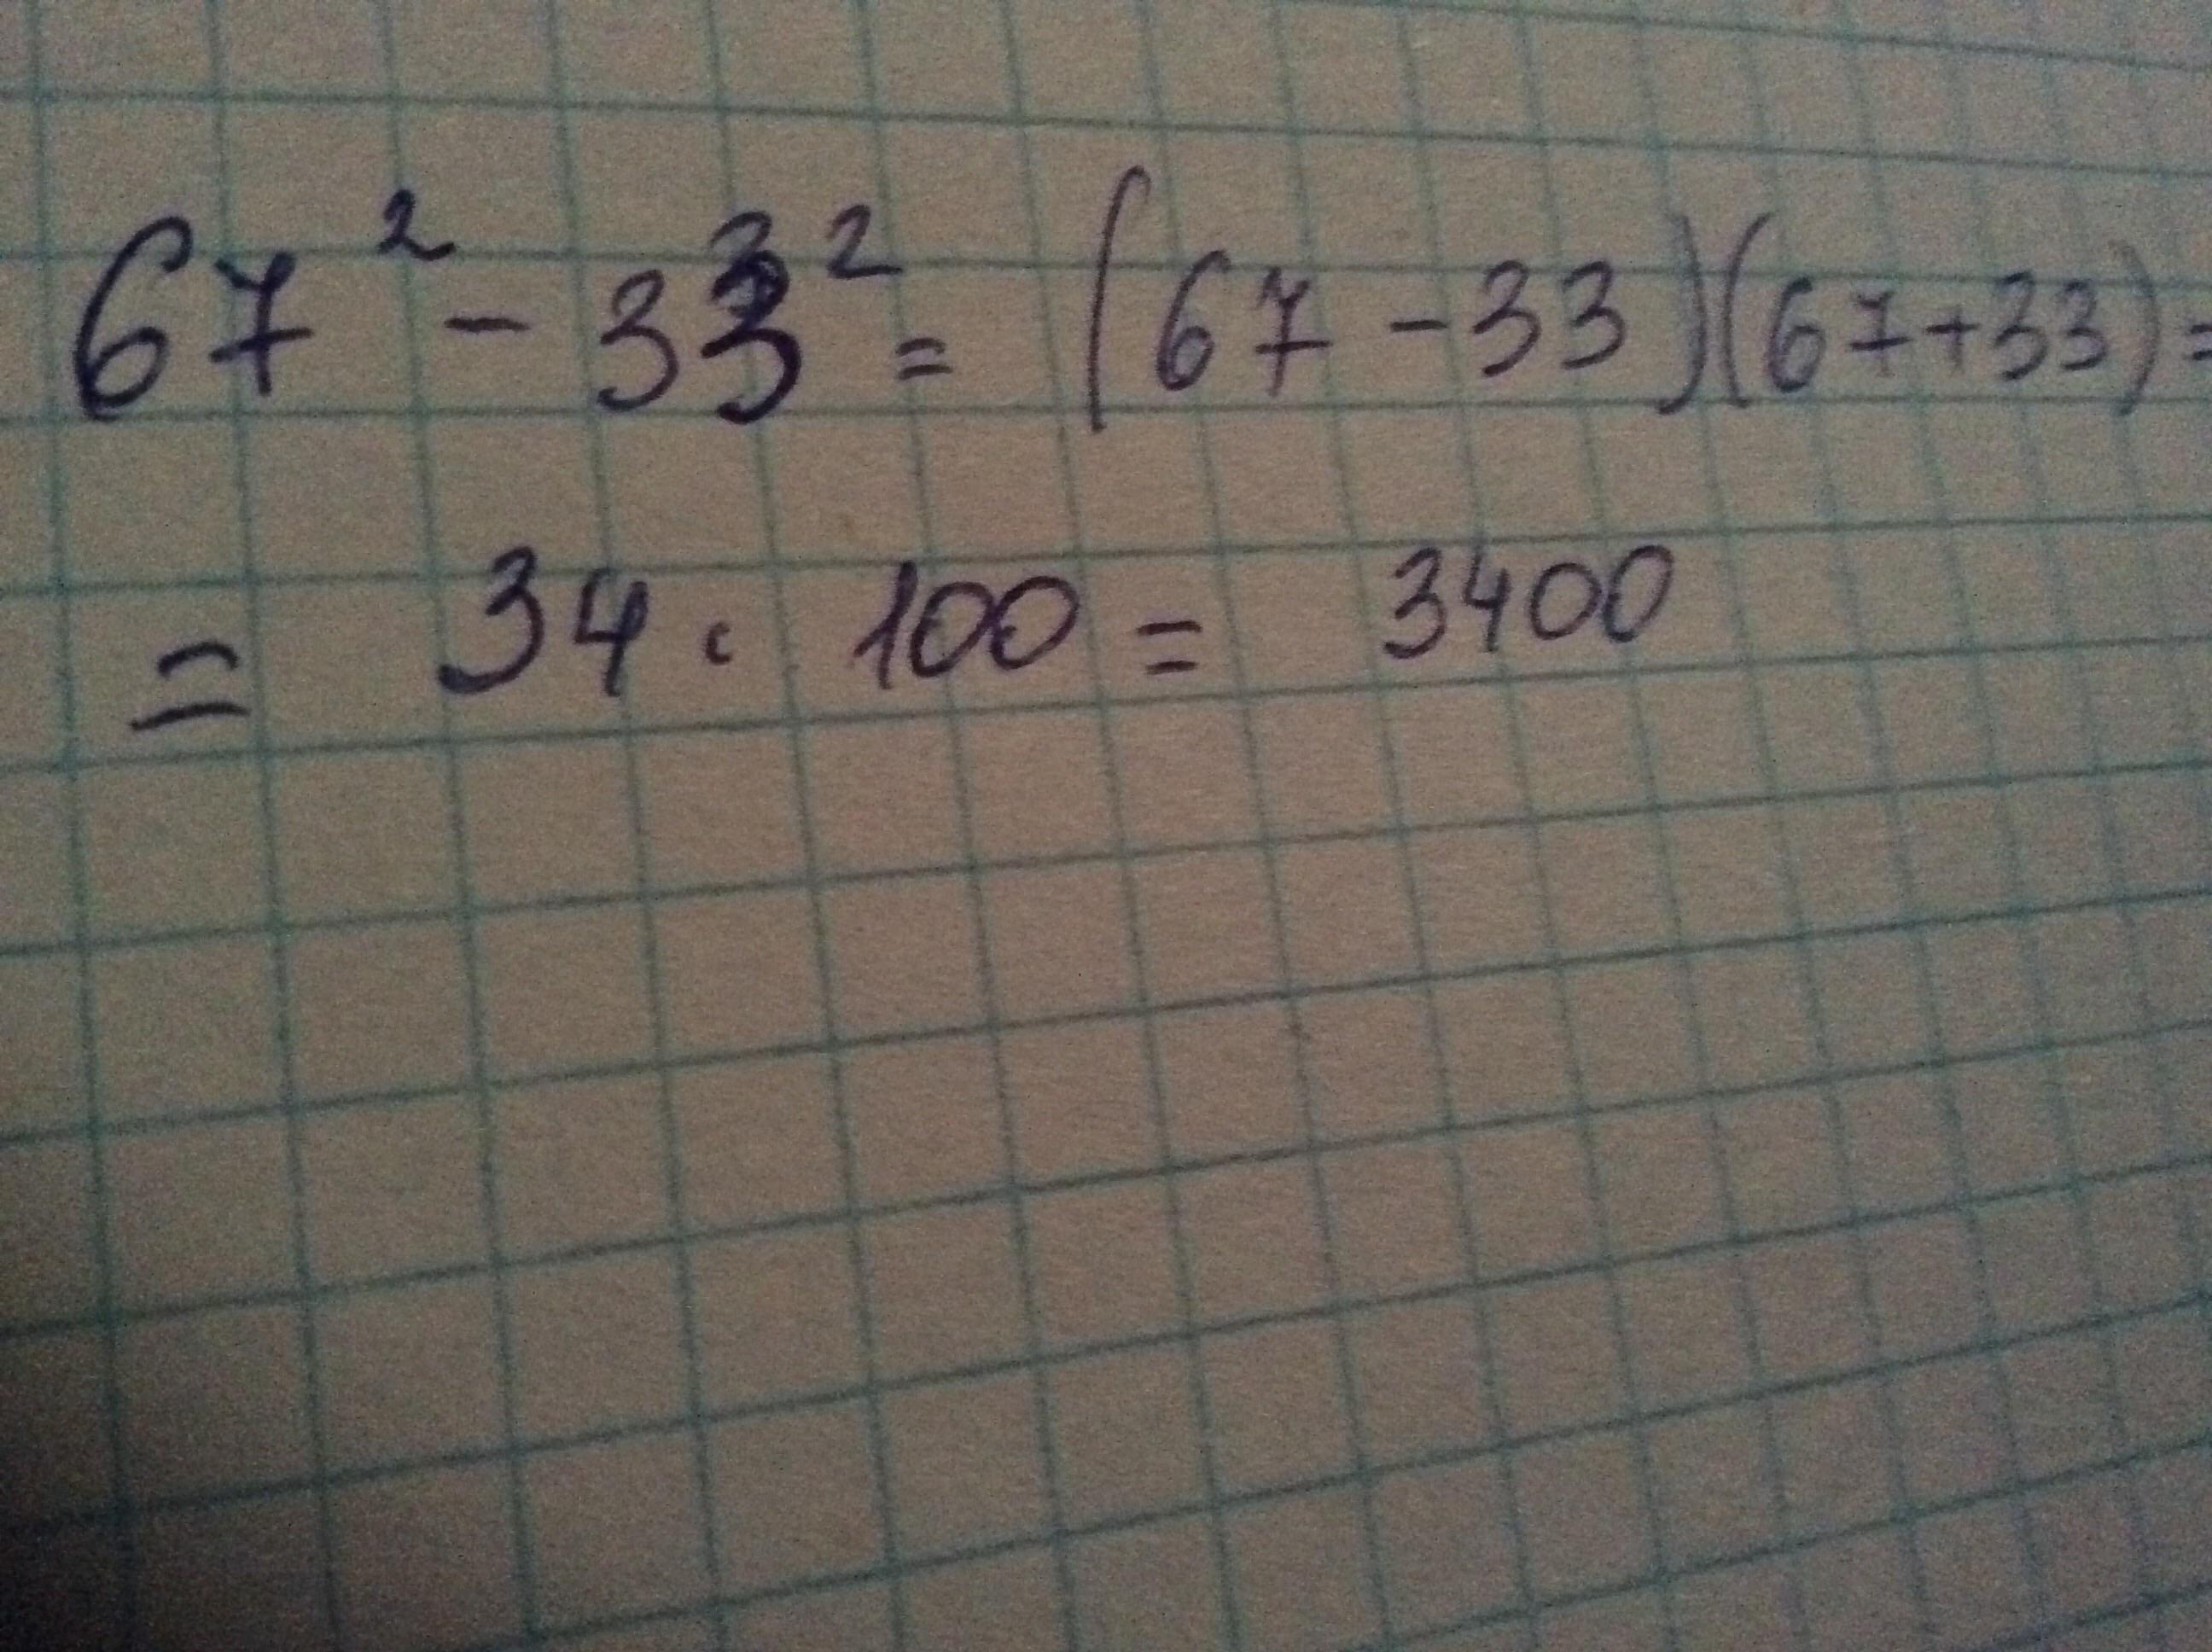 67² - 33² = (67 - 33)(67 + 33) =
= 34 · 100 = 3400